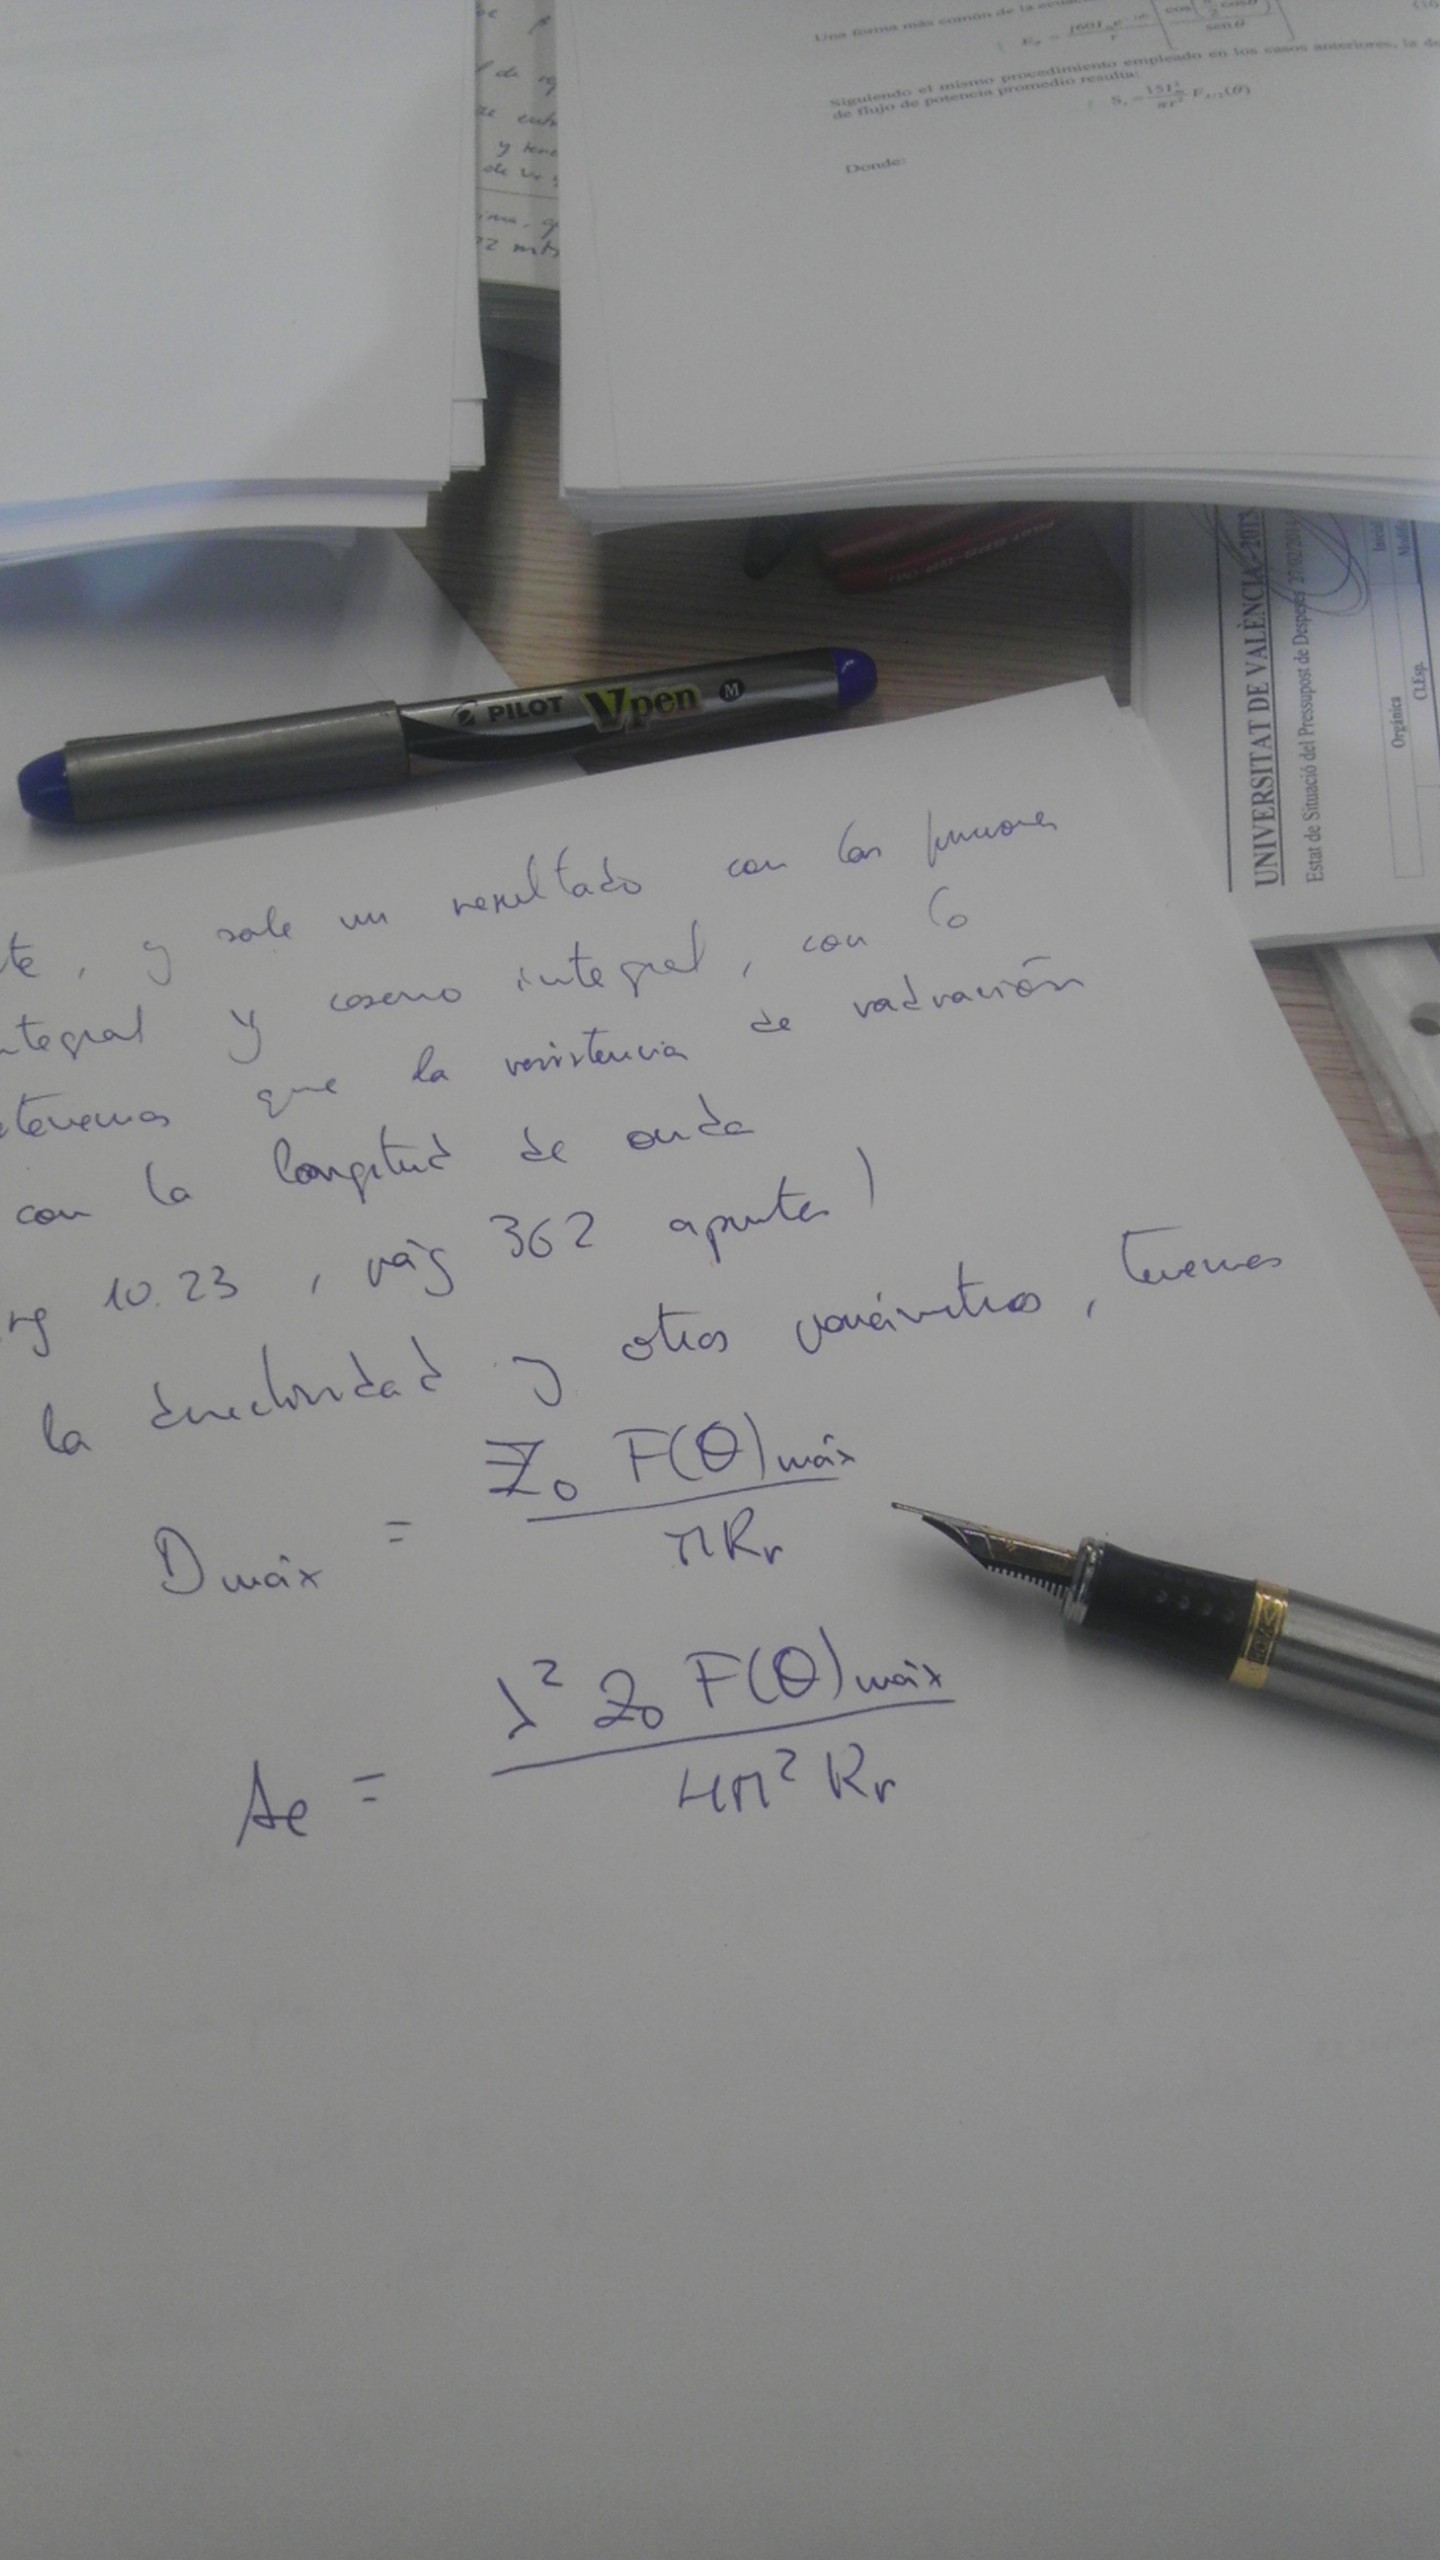 Una forma más común de la
Siguiendo el mismo procedimiento empleado en los casos anteriores, la de
de flujo de potencia promedio resulta:
Donde:
de
y tene
22 mts
UNIVERSITAT DE VALÈNCIA - 2013
Estat de Situació del Pressupost de Despeses 27/02/2014
Orgánica
Cl.Esp.
Inicial
PILOT Vpen M
te, y sale un resultado con las funciones
ntegral y coseno integral, con lo
tenemos que la resistencia de radiación
con la longitud de onda
10.23, pág 362 apuntes)
la directividad y otros parámetros, tenemos
Dmáx = Z₀ F(θ)máx / πRr
Ae = λ² Z₀ F(θ)máx / 4π² Rr